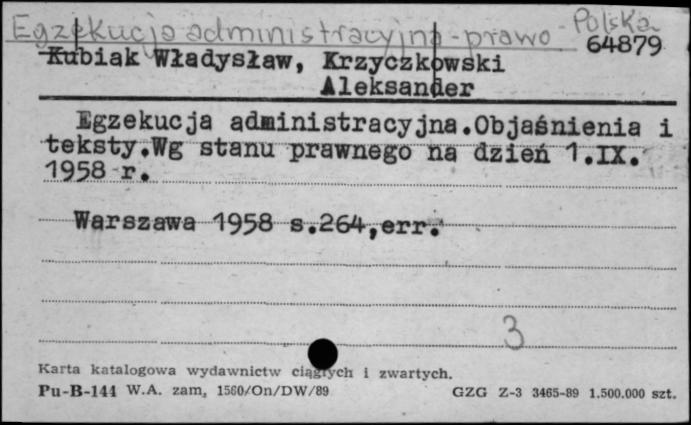 Egzekucja administracyjna - prawo - Polska
64879
Kubiak Władysław, Krzyczkowski
Aleksander
Egzekucja administracyjna.Objaśnienia i
teksty.Wg stanu prawnego na dzień 1.IX.
1958 r.
Warszawa 1958 s.264,err.
3
Karta katalogowa wydawnictw ciągłych i zwartych.
Pu-B-144 W.A. zam, 1560/On/DW/89 GZG Z-3 3465-89 1.500.000 szt.